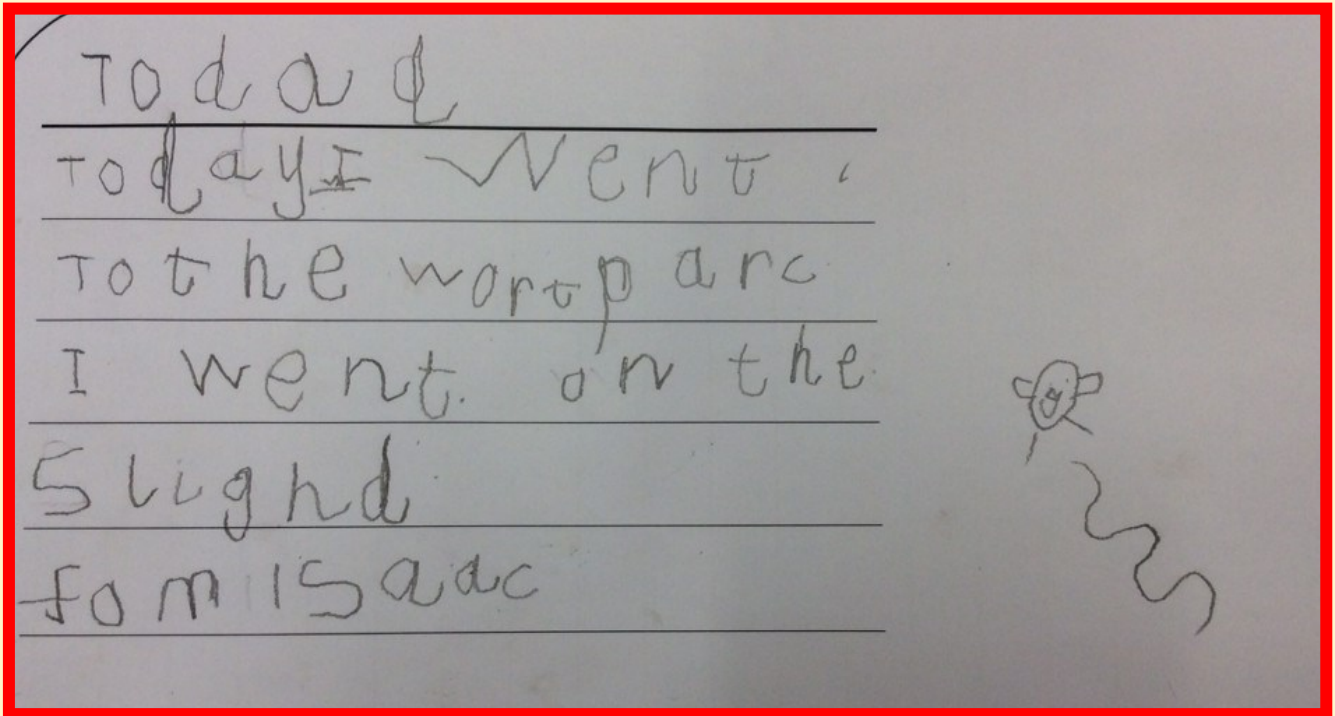 To dad
Today I went
To the wortparc
I went. on the
Slighd
fom Isaac